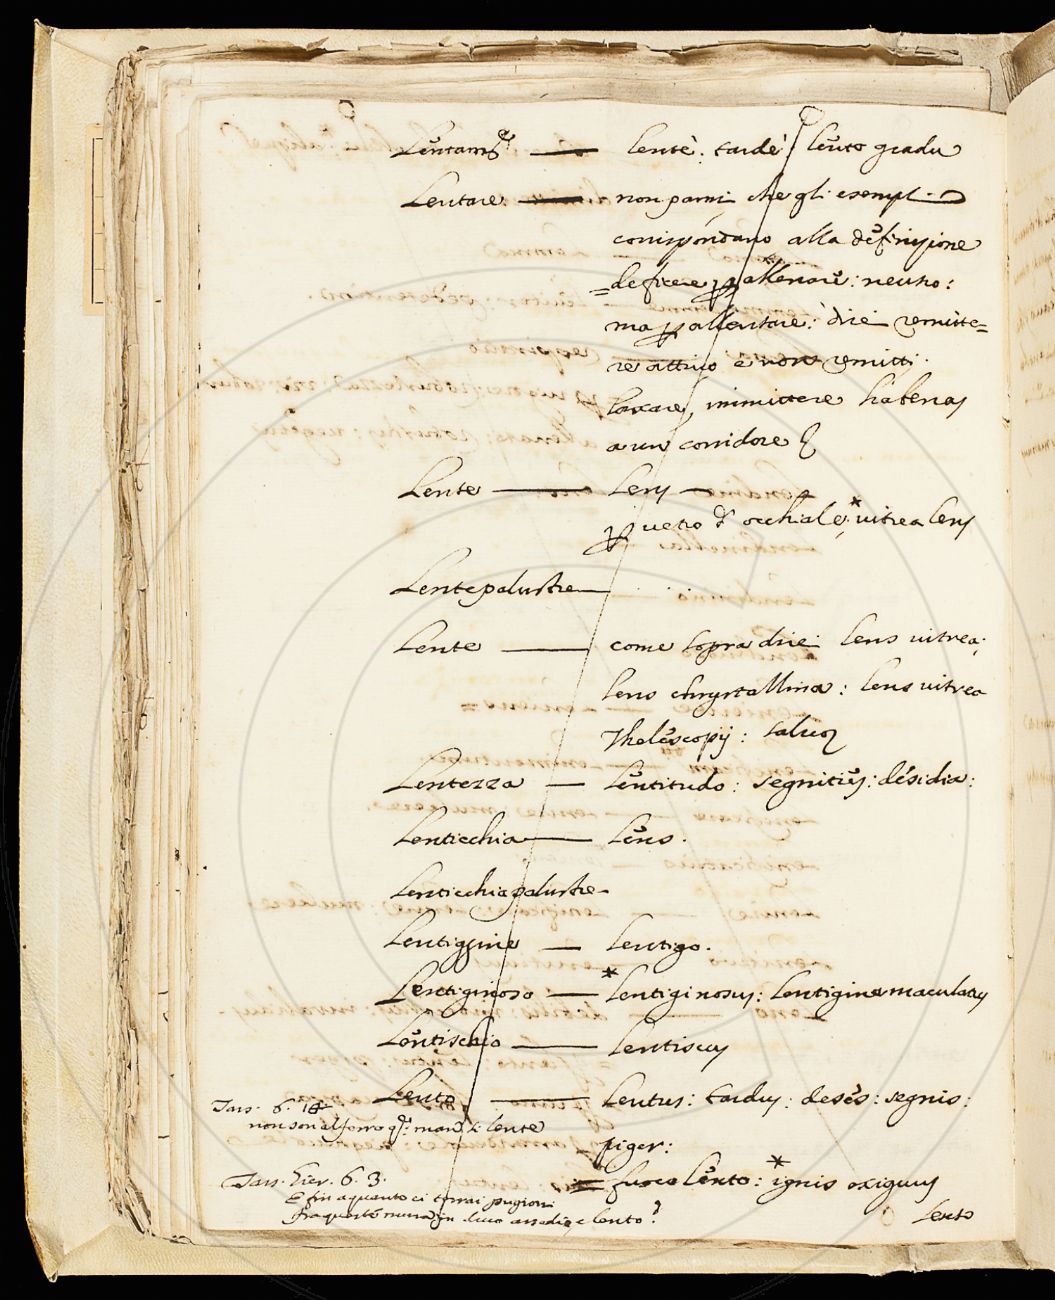 Lentam.te — lentè: tardè: lento gradu
Lentare — non parmi che gl'esempl.
corrispondano alla definizione
deficere p allenare: neutro:
ma p allentare: direi remitte=
re attivo e non remitti.
laxare, immittere habenas
a un corridore
Lente — Lens —
p vetro d'occhiale *vitrea lens
Lente palustre —
Lente — come sopra direi lens vitrea:
lens chrystallina: lens vitrea
Theloscopij: salvoz
Lentezza — Lentitudo: segnities: desidia:
Lenticchia — Lens.
Lenticchia palustre —
Lentiggine — Lentigo.
Lentiginoso — *Lentiginosus: Lentigine maculatus
Lentischio — Lentiscus
Lento — Lentus: tardus: deses: segnis:
piger:
= fuoco lento: *ignis exiguus
Lento
Tass. 6. 14
non son al ferro q.e mani lente
Tass. Gier. 6. 3.
E fin a quanto ci terrai prigioni
fra queste mura in assedio e lento?